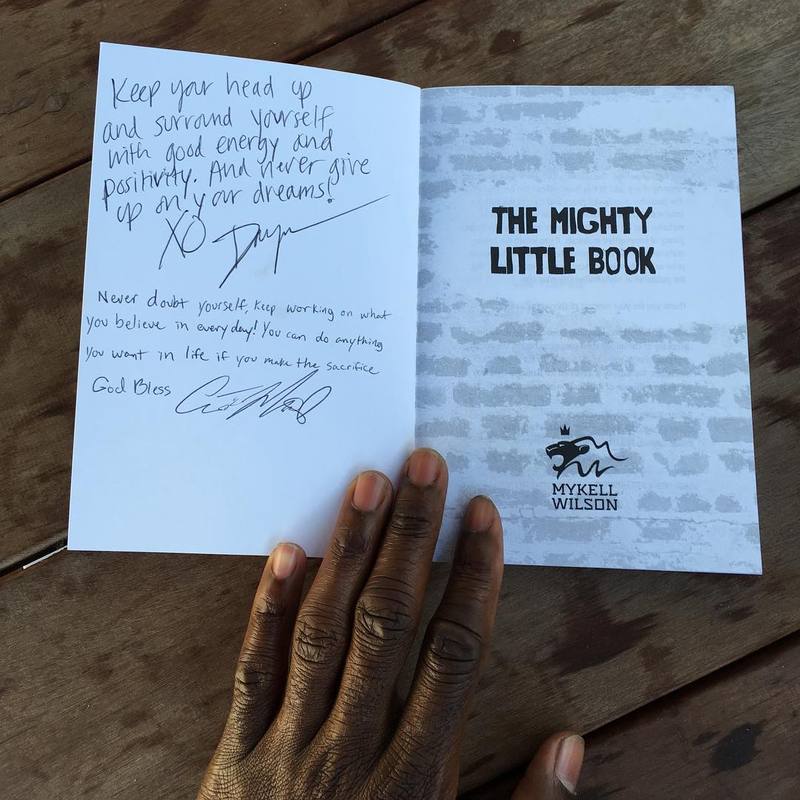 Keep your head up
and surround yourself
with good energy and
positivity. And never give
up on your dreams!
XO
Never doubt yourself, keep working on what
you believe in everyday! You can do anything
you want in life if you make the sacrifice
God Bless
THE MIGHTY
LITTLE BOOK
MYKELL
WILSON